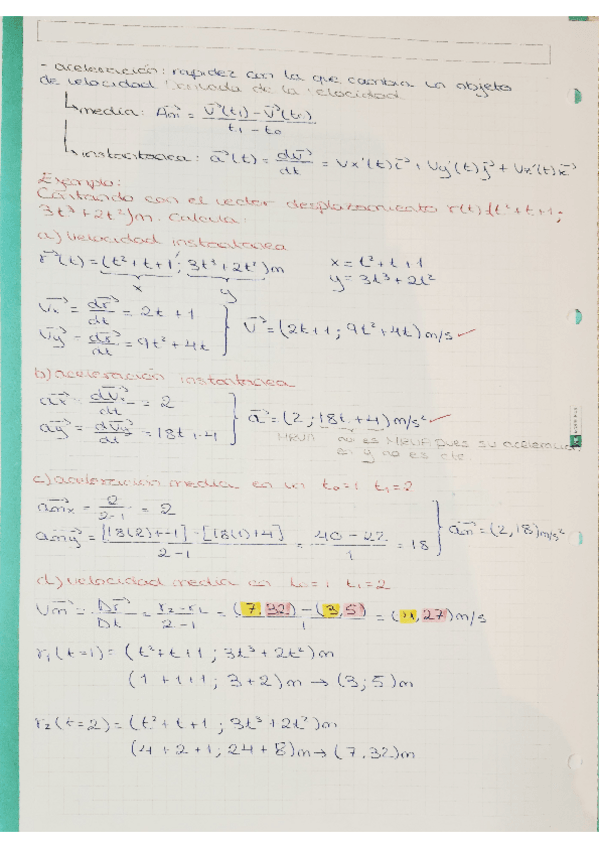 - aceleración: rapidez con la que cambia un objeto
de velocidad de la velocidad.
media: Am⃗ = V⃗(t₁) - V⃗(t₀) / t₁ - t₀
instantanea: a⃗(t) = dv⃗/dt = Vx'(t)i⃗ + Vy'(t)j⃗ + Vz'(t)k⃗
Ejemplo:
Contando con el vector desplazamiento r(t)(t²+t+1;
3t³+2t²)m. Calcula:
a) velocidad instantanea
r⃗(t) = (t²+t+1; 3t³+2t²)m x = t²+t+1
x y y = 3t³+2t²
Vx⃗ = dr⃗/dt = 2t+1
Vy⃗ = dr⃗/dt = 9t²+4t
V⃗ = (2t+1; 9t²+4t)m/s
b) aceleración instantanea
ax⃗ = dVx⃗/dt = 2
ay⃗ = dVy⃗/dt = 18t+4
a⃗ = (2; 18t+4)m/s²
MRUA no es MRUA pues su aceleracion
en y no es cte
c) aceleracion media en un t₀=1 t₁=2
amx⃗ = 2/2-1 = 2
amy⃗ = [18(2)+4] - [18(1)+4] / 2-1 = 40-22 / 1 = 18
am⃗ = (2,18)m/s²
d) velocidad media en t₀=1 t₁=2
Vm⃗ = Dr⃗/Dt = r₂-r₁ / 2-1 = (7,32)-(3,5) / 1 = (4,27)m/s
r₁(t=1) = (t²+t+1; 3t³+2t²)m
(1+1+1; 3+2)m → (3;5)m
r₂(t=2) = (t²+t+1; 3t³+2t²)m
(4+2+1; 24+8)m → (7,32)m